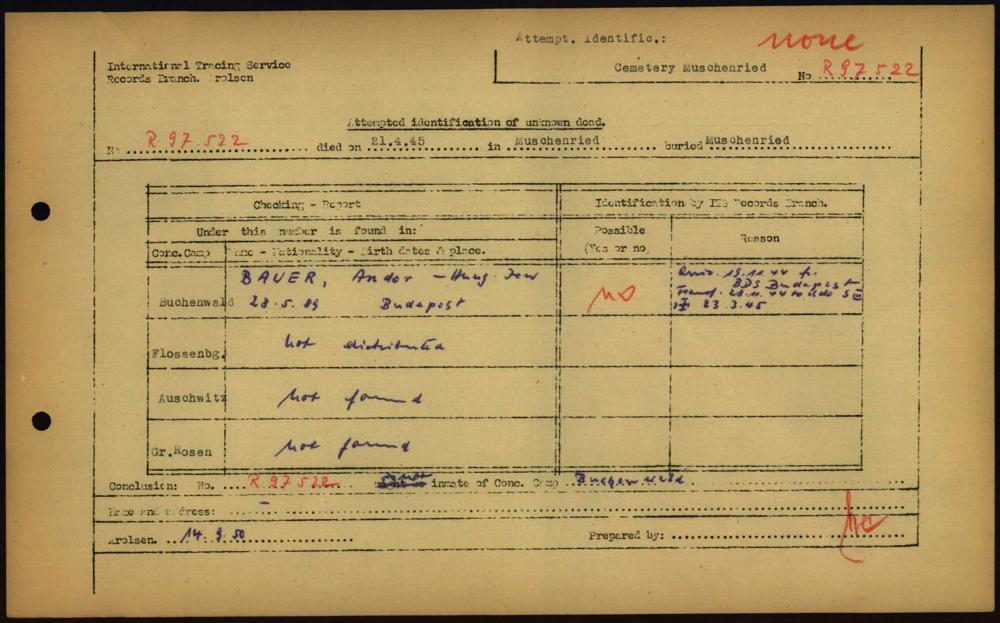 Attempt. Identific.: none
International Tracing Service
Records Branch. Arolsen
Cemetery Muschenried
No R 97 522
Attempted identification of unknown dead.
No R 97 522 died on 21.4.45 in Muschenried buried Muschenried
Checking - Report
Identification by ITS Records Branch.
Under this number is found in:
Possible
(Yes or no)
Reason
Conc.Camp
Name - Nationality - Birth dates & place.
Buchenwald
BAUER, Andor - Hung. Jew
28.5.89 Budapest
no
19.11.44 fr.
BDS Budapest
Transf. 28.11.44 to S III
23.3.45
Flossenbg.
not distributed
Auschwitz
not found
Gr.Rosen
not found
Conclusion: No. R 97 522 inmate of Conc. Camp Buchenwald
Name and address: -
Arolsen. 14.9.50
Prepared by: